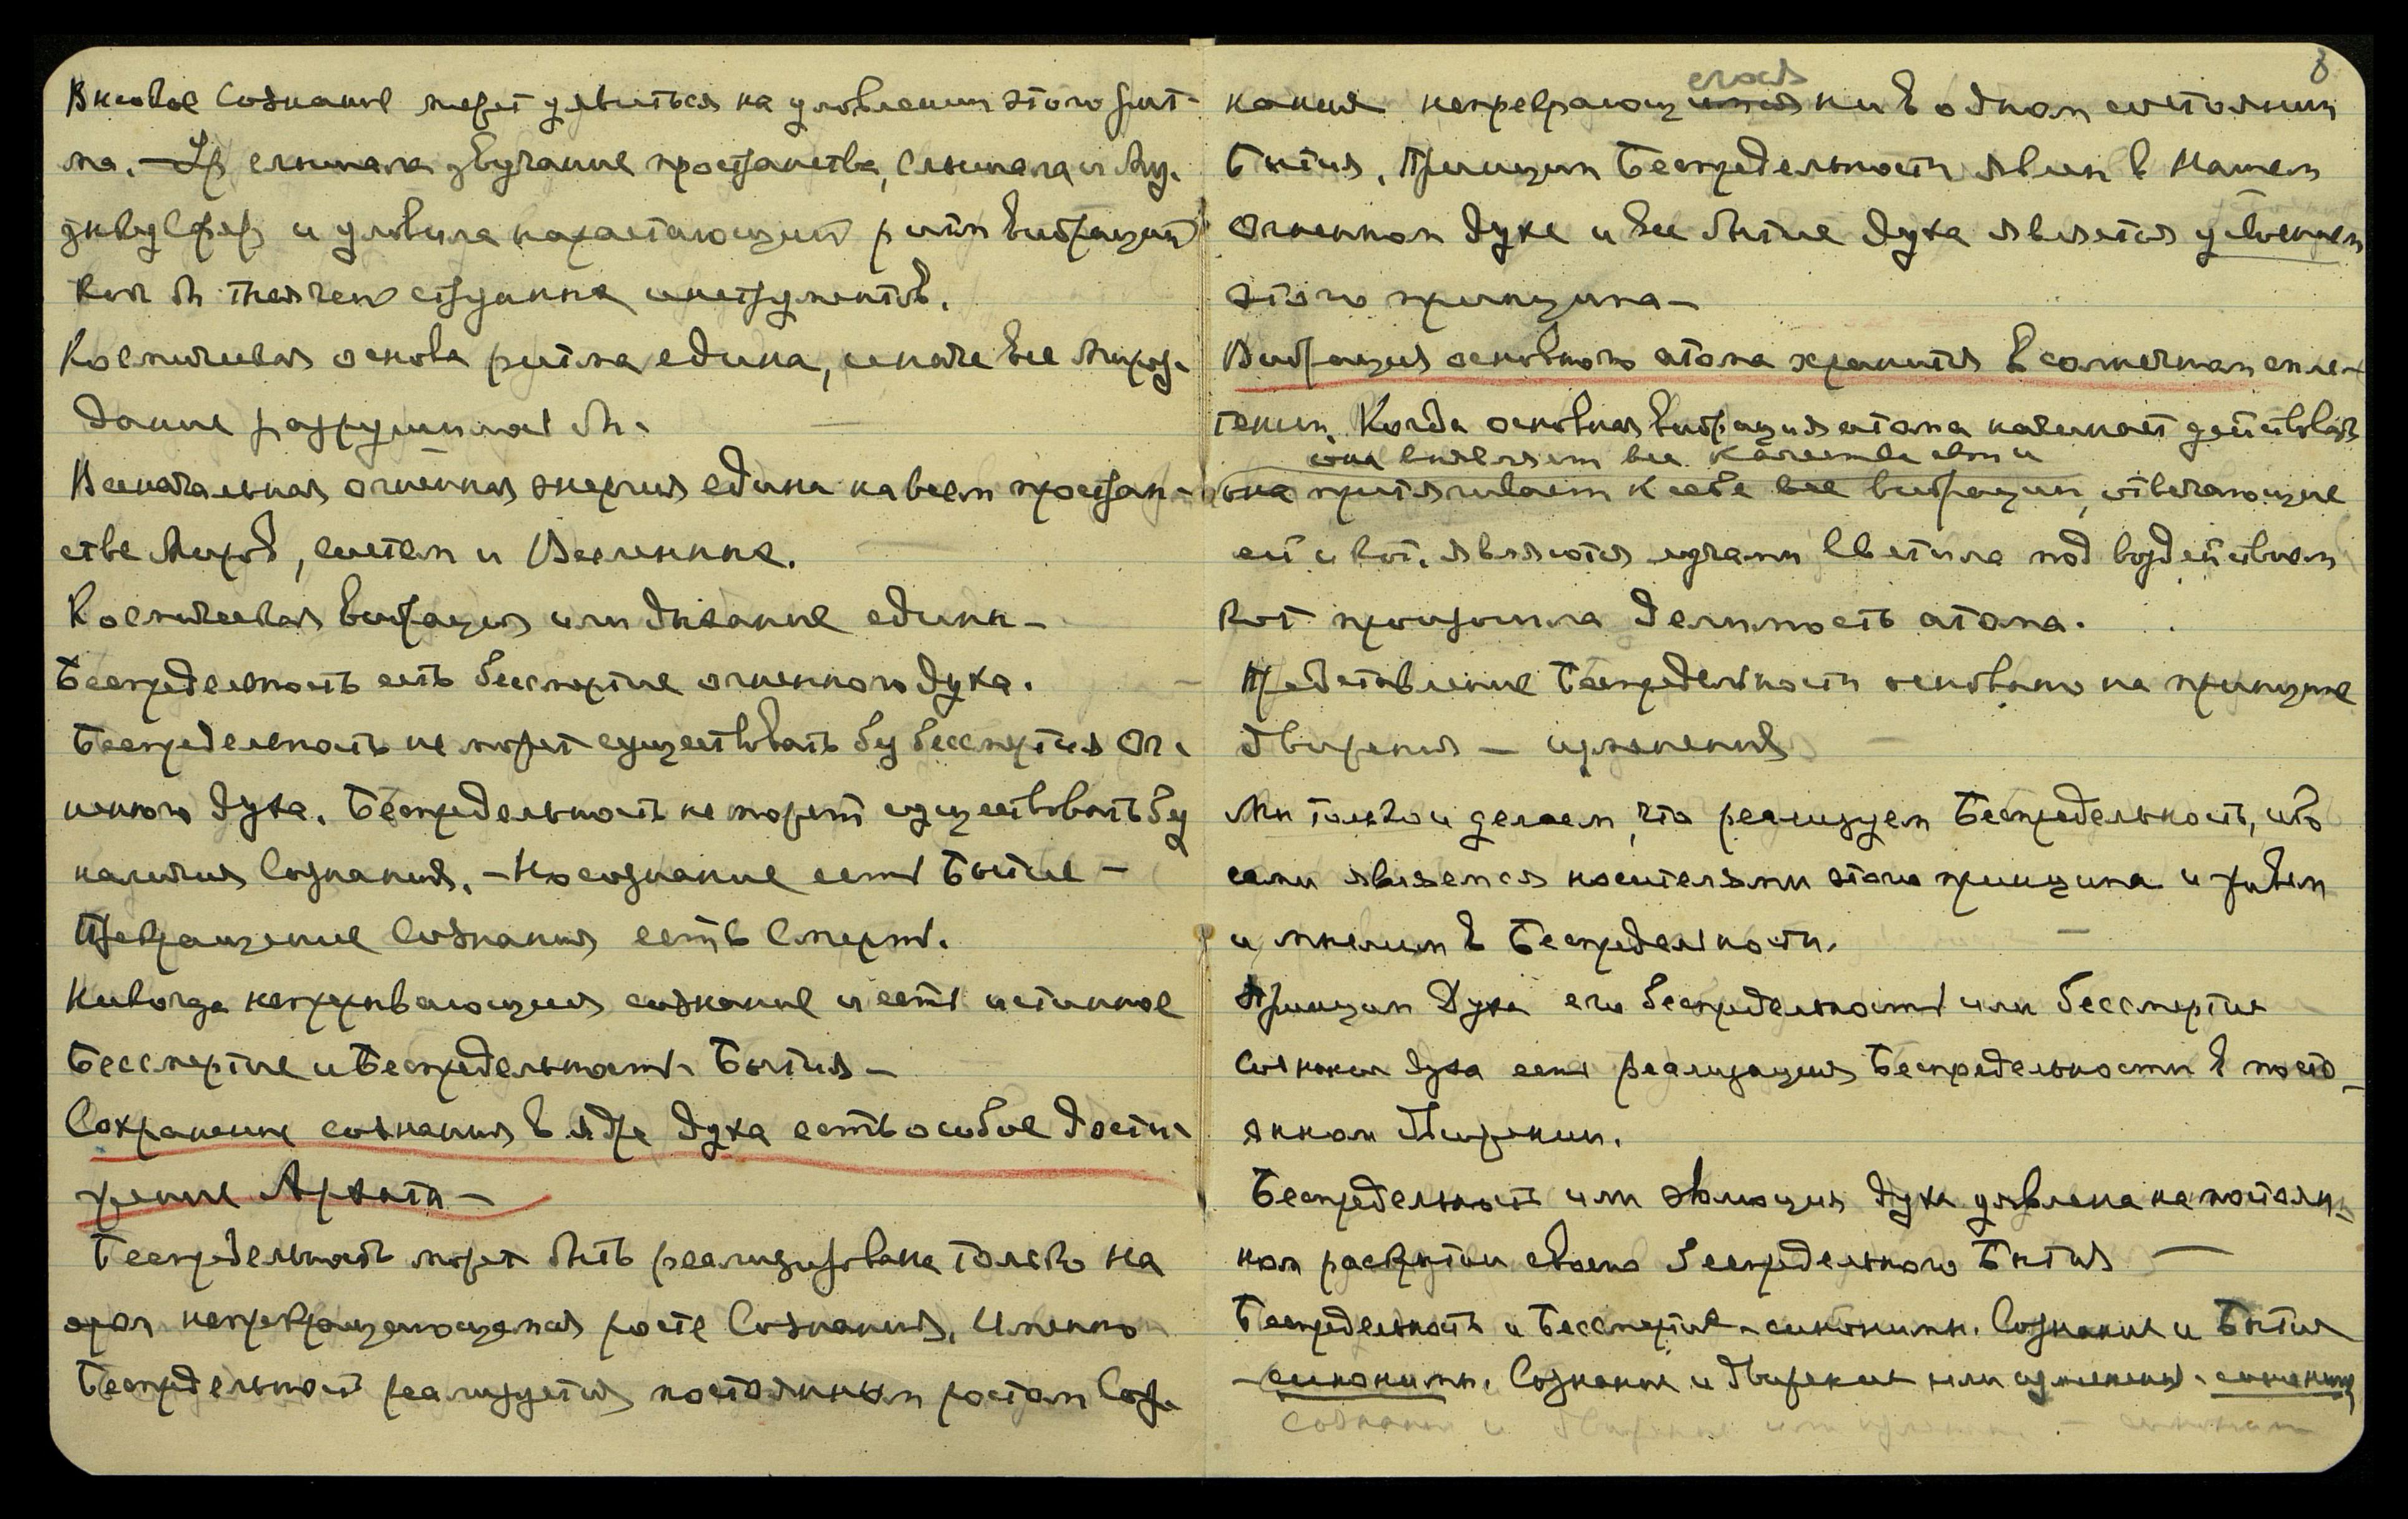 Высокое Сознание может уявиться на уловлении этого рит-
ма. — Ур слышала звучание пространства, слышала и Му.
зыку Сфер и уловила нарастающий ритм вибраций
как бы тысячей струнных инструментов.
Космическая основа ритма едина, иначе все Мироз-
дание разрушилось бы.
Всеначальная огненная энергия едина на всем простран-
стве Миров, систем и Вселенных.
Космическая вибрация или дыхание едины —
Беспредельность есть бессмертие огненного духа.
Беспредельность не может существовать без бессмертия Ог-
ненного духа. Беспредельность не может существовать без
наличия Сознания. — Но сознание есть Бытие —
Прекращение Сознания есть Смерть.
Никогда непрерывающееся сознание и есть истинное
Бессмертие и Беспредельность Бытия —
Сохранение сознания в ядре духа есть особое дости-
жение Архата —
Беспредельность может быть реализирована только на
этом непрекращающемся росте Сознания. Именно
Беспредельность реализуется постоянным ростом Соз-
8
егося
нания непрекращающ ни в одном состоянии
Бытия. Принцип Беспредельности явлен в нашем
Огненном духе и все бытие духа является усвоением
этого принципа —
Вибрация основного атома хранится в солнечном спле-
тении. Когда основная вибрация атома начинает действовать
она выявляет все качества свои и
она притягивает к себе все вибрации, отвечающие
ей и кот. являются лучами Светила под воздействием
кот произошла делимость атома.
— Представление Беспредельности основано на принципе
движения — изменения —
Мы только и делаем, что реализуем Беспредельность, ибо
сами являемся носителями этого принципа и живем
и мыслим в Беспредельности. —
Принцип Духа его беспредельность или бессмертие
Сознания духа есть реализация Беспредельности в посто-
янном Движении.
Беспредельность или эволюция духа уявлена на постоян-
ном раскрытии своего беспредельного Бытия —
Беспредельность и Бессмертие — синонимы. Сознание и Бытие
— синонимы. Сознание и Движение или изменения — синонимы
Сознание и Движение или изменение — синоним